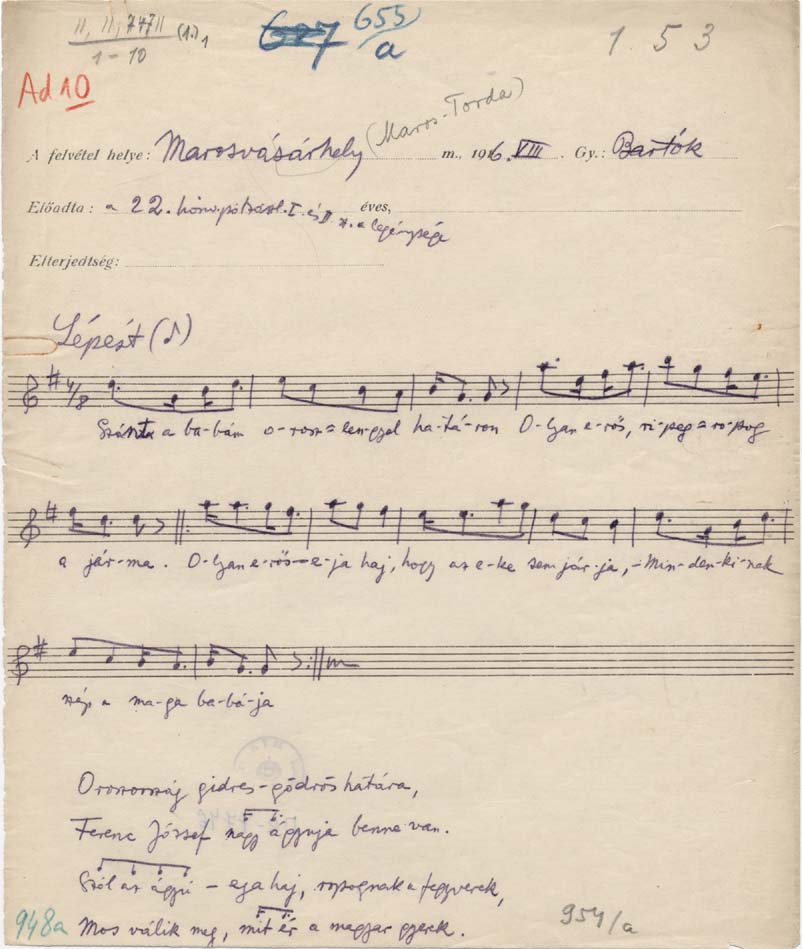 II, II, 7471 (1.) 1
1-10
627 655/a
153
Ad 10
A felvétel helye: Marosvásárhely (Maros-Torda) m., 1916. VIII. Gy.: Bartók
Előadta: a 22. honv. pótzászl. I. és II. sz. a legénysége éves,
Elterjedtség:
Lépést (♪)
4/8
Szánt a ba-bám o-rosz=len-gyel ha-tá-ron O-lyan e-rős, ri-peg=ro-pog
a jár-ma. O-lyan e-rős-e-ja haj, hogy az e-ke sem jár-ja, -Min-den-ki-nek
szép a ma-ga ba-bá-ja
Oroszország gidres-gödrös határa,
Ferenc József nagy ágyuja benne van.
Szól az ágyú - eja haj, ropognak a fegyverek,
Mos válik meg, mit ér a magyar gyerek.
948a
954/a